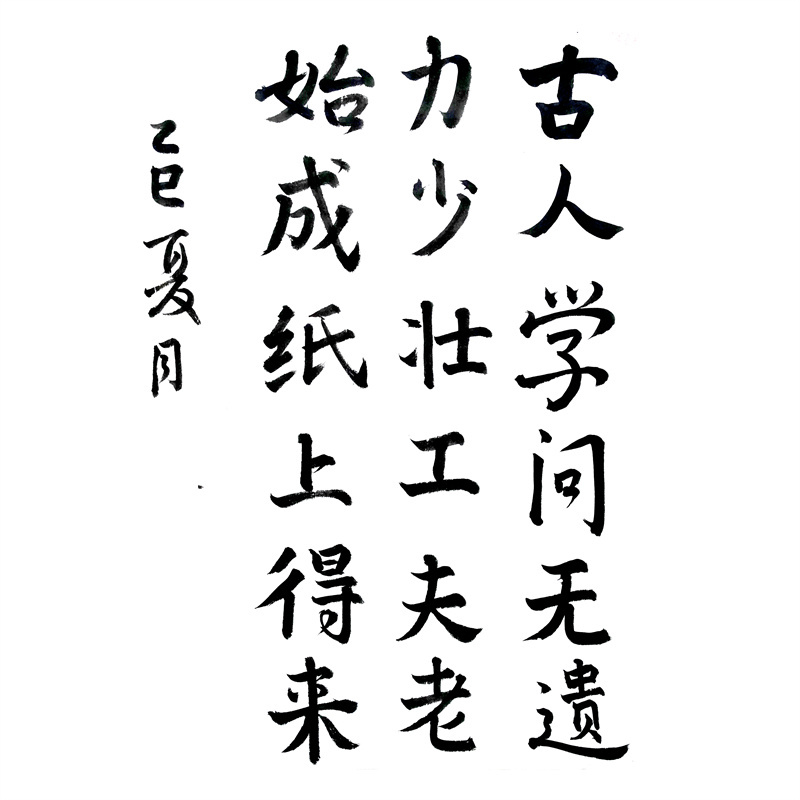 古人学问无遗
力少壮工夫老
始成纸上得来
乙巳夏月